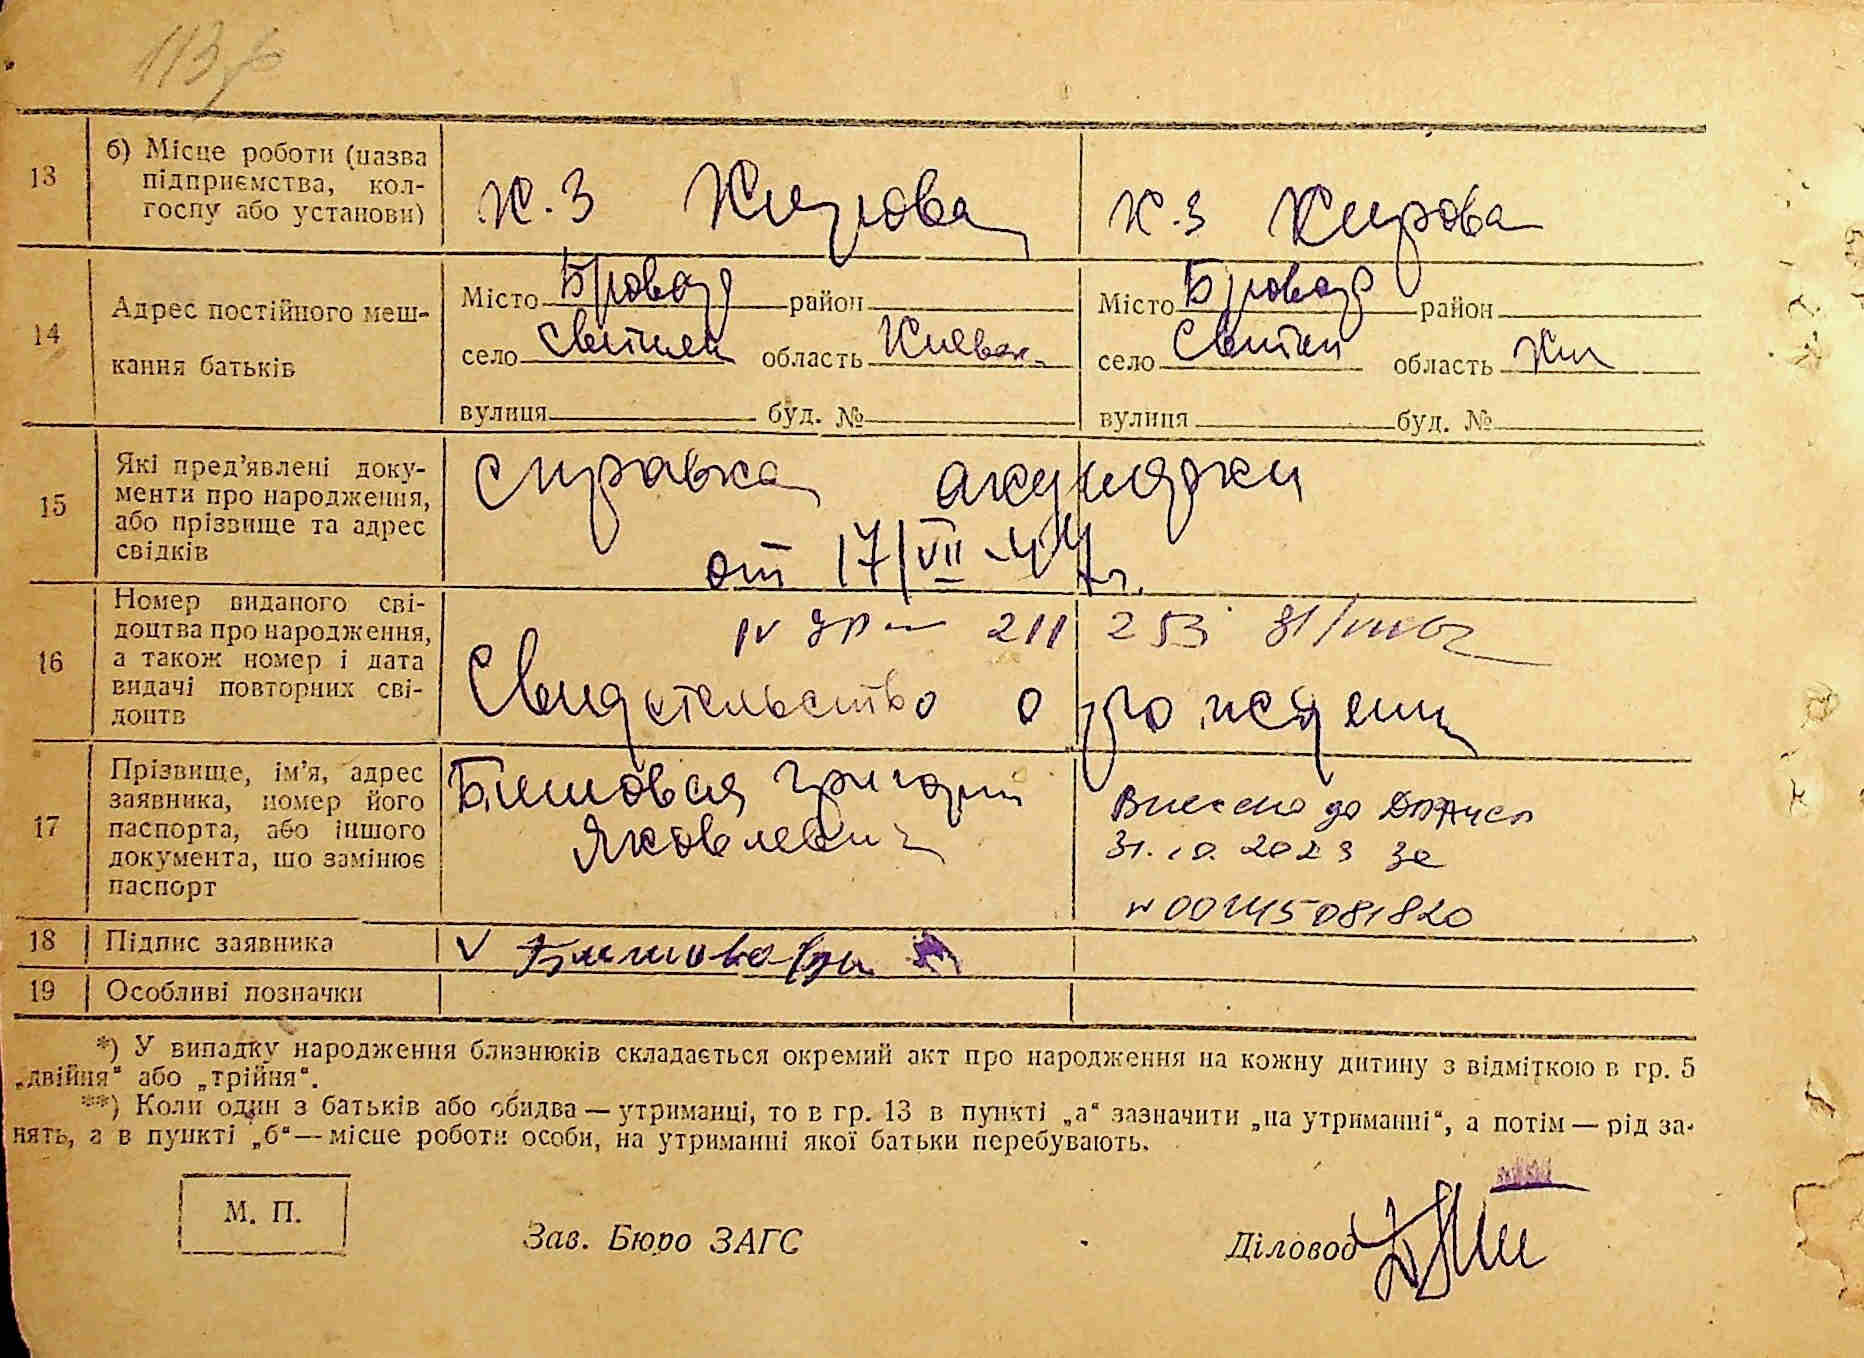 113
13
б) Місце роботи (назва
підприємства, кол-
госпу або установи)
К.З Кирова
К.З Кирова
14
Адрес постійного меш-
кання батьків
Місто Бровар район
село Світильн область Киевск.
вулиця буд. №
Місто Бровар район
село область Ки
вулиця буд. №
15
Які пред'явлені доку-
менти про народження,
або прізвище та адрес
свідків
справка акушерки
от 17/VII-44 г.
16
Номер виданого сві-
доцтва про народження,
а також номер і дата
видачі повторних сві-
доцтв
IV 211 253
Свидетельство о рождении
17
Прізвище, ім'я, адрес
заявника, номер його
паспорта, або іншого
документа, що замінює
паспорт
Григорий
Яковлевич
Внесено до ДРАЦСГ
31.10.2023 за
N 00145081820
18
Підпис заявника
V
19
Особливі позначки
*) У випадку народження близнюків складається окремий акт про народження на кожну дитину з відміткою в гр. 5
„двійня" або „трійня".
**) Коли один з батьків або обидва — утриманці, то в гр. 13 в пункті „а" зазначити „на утриманні", а потім — рід за-
нять, а в пункті „б" — місце роботи особи, на утриманні якої батьки перебувають.
М. П.
Зав. Бюро ЗАГС
Діловод